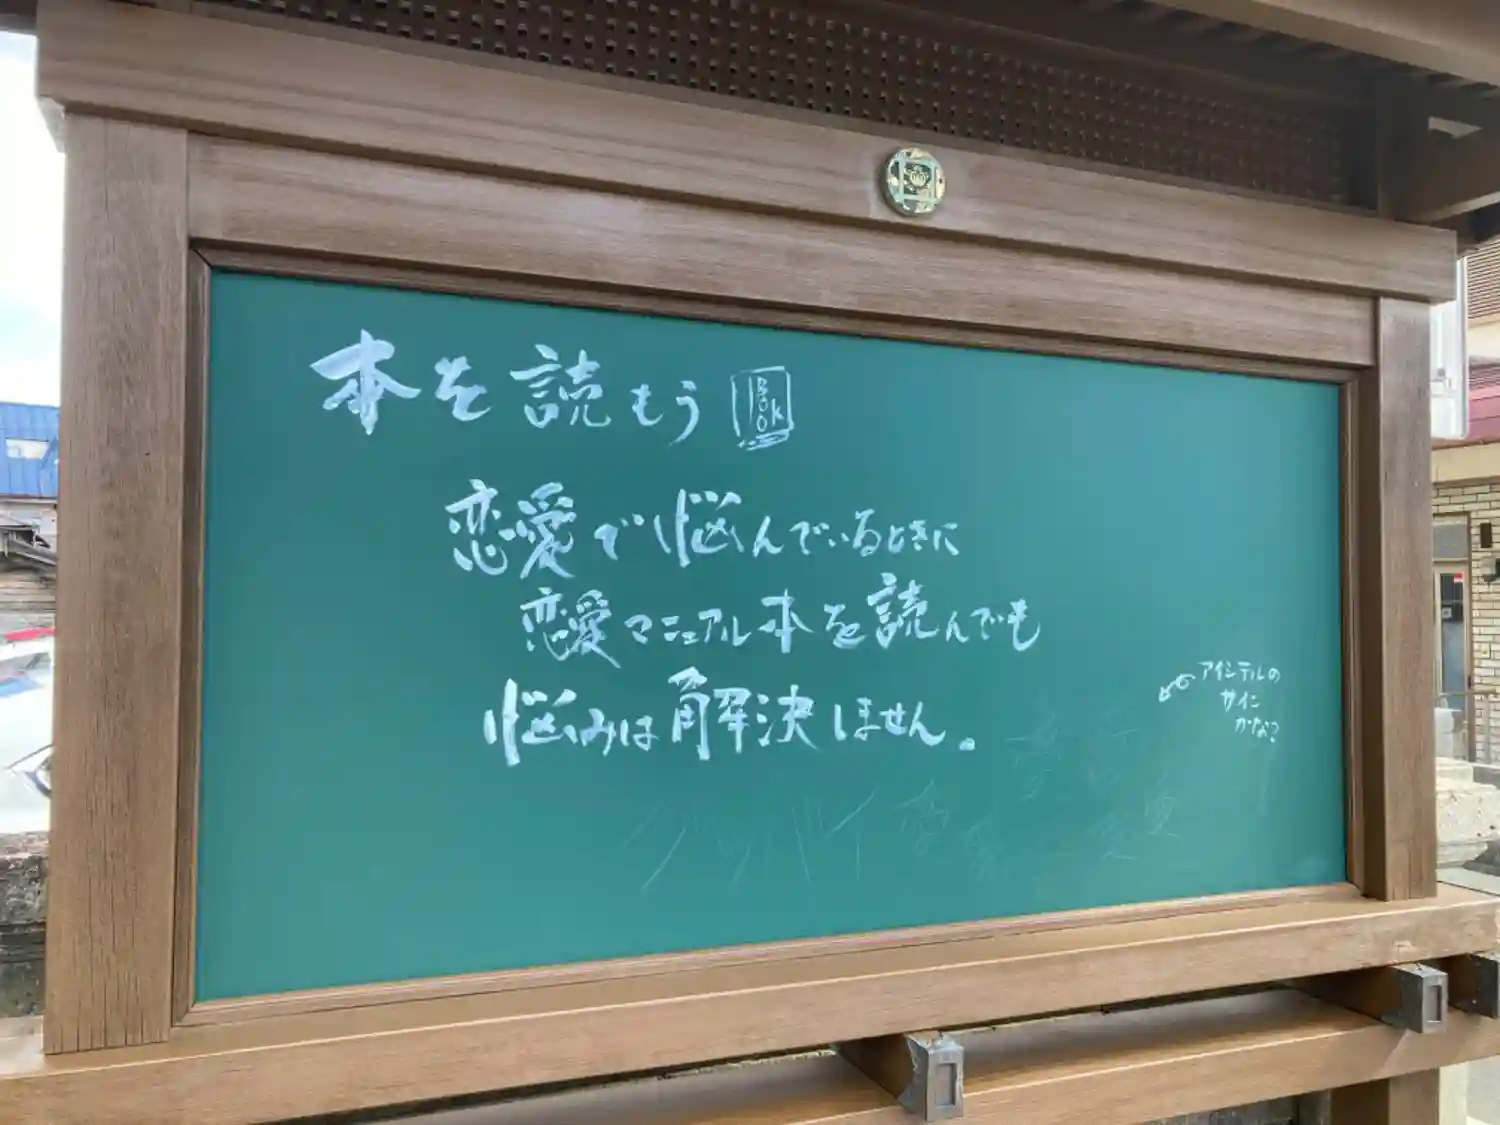 本を読もう BOOK
恋愛で悩んでいるときに
恋愛マニュアル本を読んでも
悩みは解決しません。
アイシテルの
サイン
かな?